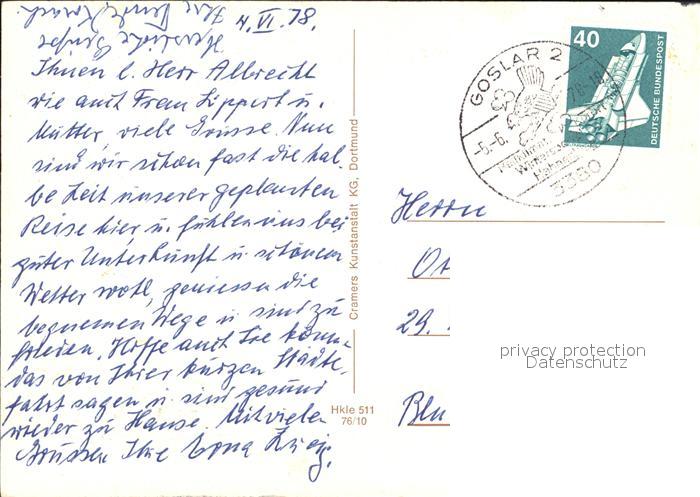 4. VI. 78.
Herzliche Grüße
Ihre
Ihnen l. Herr Albrecht
wie auch Frau Lippert u.
Mutter viele Grüsse. Nun
sind wir schon fast die hal-
be Zeit unserer geplanten
Reise hier u. fühlen uns bei
guter Unterkunft u. schönem
Wetter wohl, geniessen die
bequemen Wege u. sind zu
frieden. Hoffe auch Sie könn-
das von Ihrer kurzen Städte-
fahrt sagen u. sind gesund
wieder zu Hause. Mit vielen
Grüssen Ihre Erna
Cramers Kunstanstalt KG, Dortmund
Hkle 511
76/10
GOSLAR 2
-5.-6. 78-18
3380
40
DEUTSCHE BUNDESPOST
Herrn
Ot
29.
Blu
privacy protection
Datenschutz